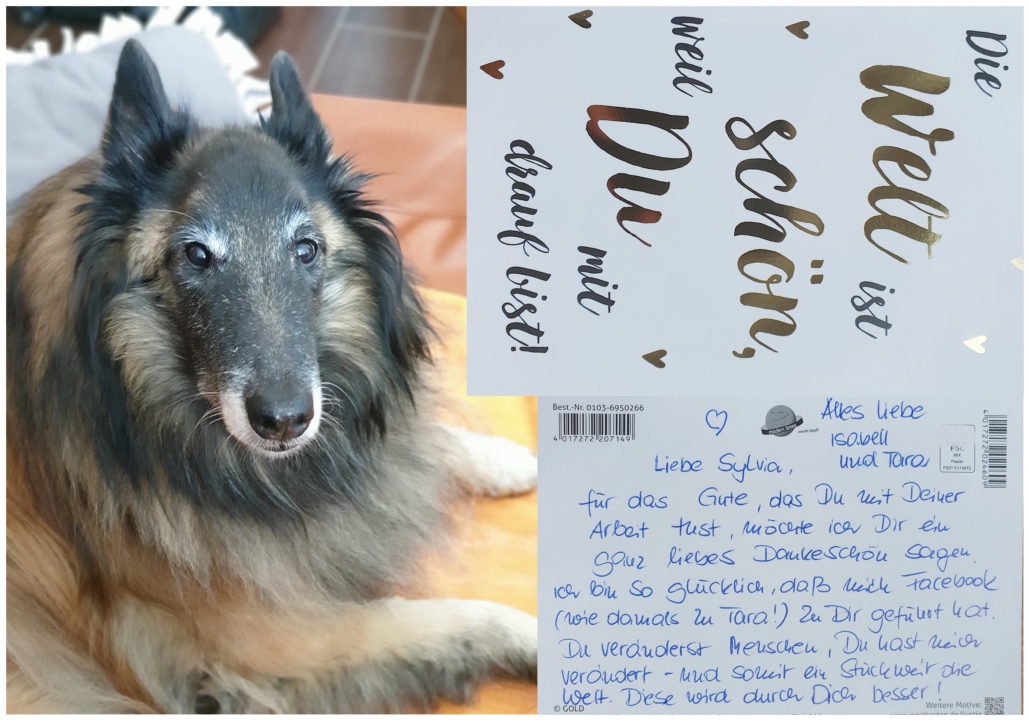 Die
Welt ist
schön,
weil
Du mit
drauf bist!
Best.-Nr. 0103-6950266
4 017272 207149
modern times
Alles Liebe
Isabell
und Tara
4 017272 024609
FSC
MIX
Papier
Liebe Sylvia,
für das Gute, das Du mit Deiner
Arbeit tust, möchte ich Dir ein
ganz liebes Dankeschön sagen.
ich bin so glücklich, daß mich Facebook
(wie damals zu Tara!) zu Dir geführt hat.
Du veränderst Menschen, Du hast mich
verändert - und somit ein Stückweit die
Welt. Diese wird durch Dich besser!
© GOLD
Weitere Motive: